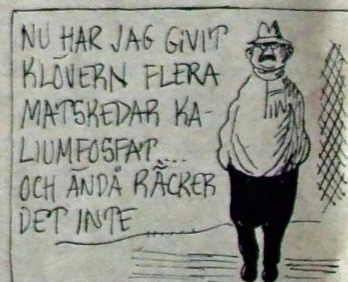 NU HAR JAG GIVIT
KLÖVERN FLERA
MATSKEDAR KA-
LIUMFOSFAT....
OCH ÄNDÅ RÄCKER
DET INTE